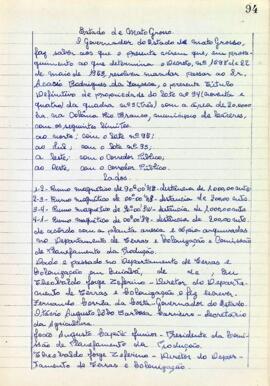 94
Estado de Mato Grosso
O Governador do Estado de Mato Grosso,
faz saber aos que o presente virem que, em pros-
seguimento ao que determina o Decreto, nº 1598 de 22
de maio de 1953, resolveu mandar passar ao Sr.
Acacio Rodrigues da, o presente Titulo
Definitivo de propriedade do lote nº 94 (noventa e
quatro) da quadra nº 3 (três) com a área de 20.000
ha na Colônia Rio Branco, município de Cáceres,
com os seguintes limites:
ao norte; com o lote nº 95;
ao Sul; com o lote nº 93;
a leste; com o Corredor Público;
ao oeste; com o Corredor Público.
Lados
1-2 - Rumo magnético de distância de 1.000,00 mts
2-3 - Rumo magnético de distância de 200,00 mts.
3-4 - Rumo magnético de distância de 1.000,00 mts
4-1 - Rumo magnético de distância de 200,00 mts.
de acordo com a planta anexa e cópia arquivadas
no Departamento de Terras e Colonização e Comissão
de Planejamento da Produção.
Dado e passado no Departamento de Terras e
Colonização em Cuiabá, de de; Eu
Jorge Zeferino - Diretor do Departa-
mento de Terras e Colonização o fiz escrever.
Fernando Corrêa da Costa - Governador do Estado.
Augusto Barbosa Barreiro - Secretário
da Agricultura.
João Augusto Capilé Junior - Presidente da Comis-
são de Planejamento da Produção.
Jorge Zeferino - Diretor do Depar-
tamento de Terras e Colonização.